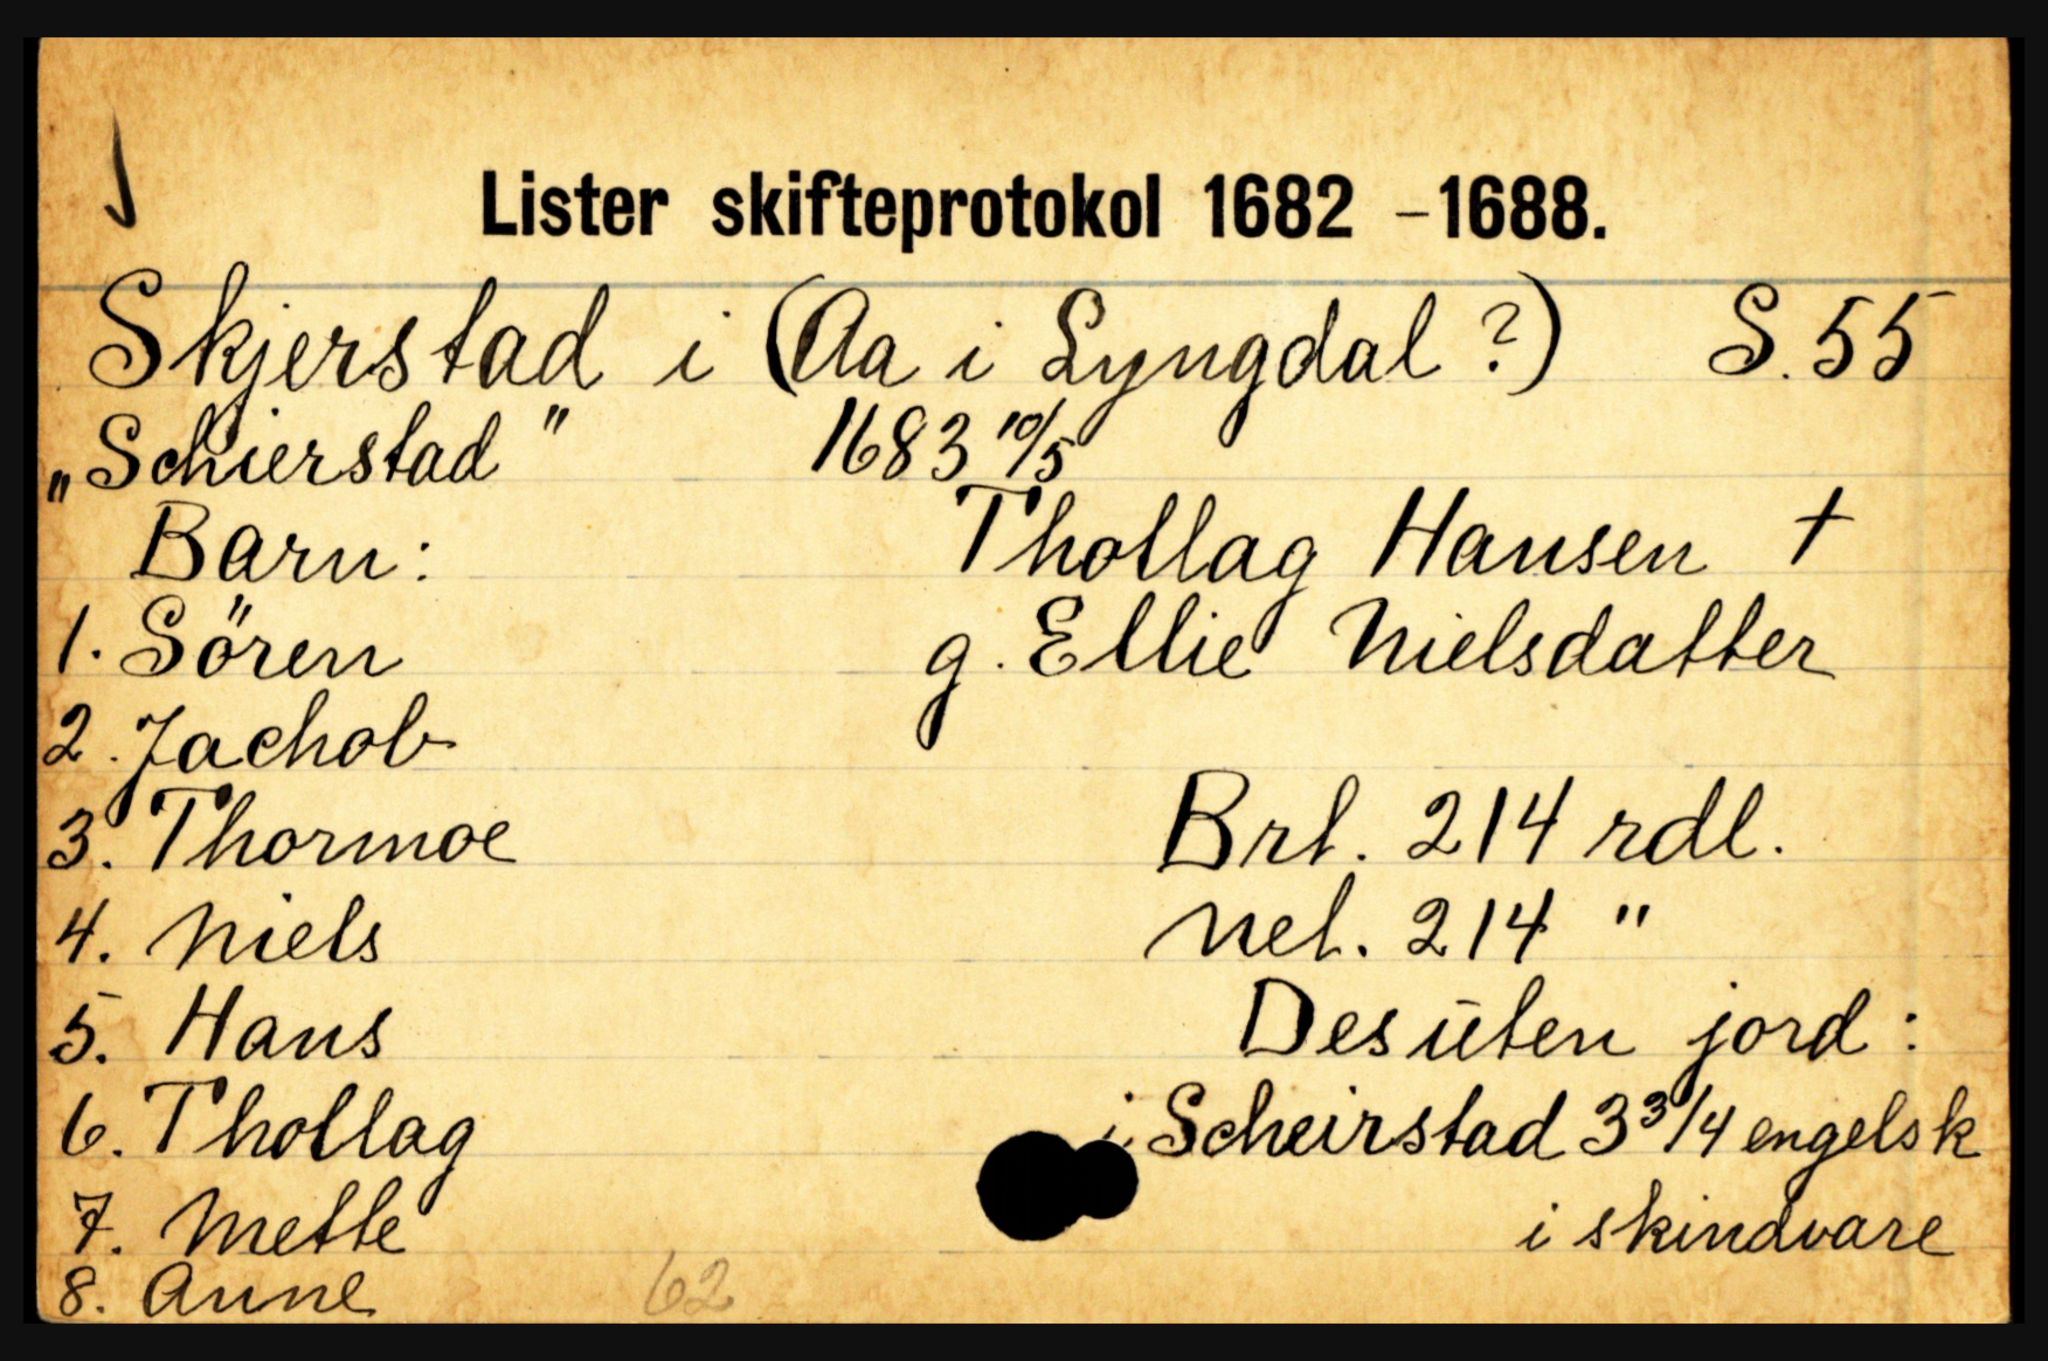 Lister skifteprotokol 1682 - 1688.
Skjerstad i (Aa i Lyngdal ?) S. 55
„Schierstad" 1683 10/5
Barn: Thollag Hansen †
1. Sören g. Ellie Nielsdatter
2. Jachob
3. Thormoe Brt. 214 rdl.
4. Niels Net. 214 "
5. Hans Desūten jord:
6. Thollag i Scheirstad 3 3/4 engelsk
7. Mette i skindvare
8. Anne 62